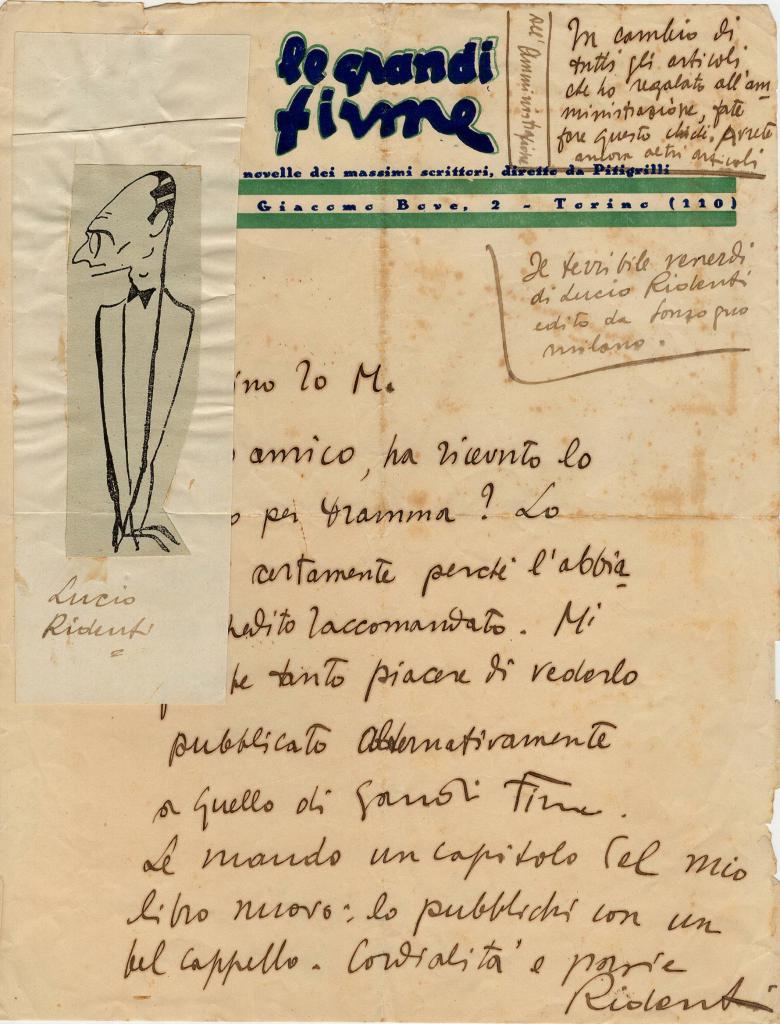 le grandi
firme
novelle dei massimi scrittori, dirette da Pitigrilli
Giacomo Bove, 2 - Torino (110)
All'Amministrazione
In cambio di
tutti gli articoli
che ho regalato all'am
ministrazione, fate
fare questo clichè. Avrete
ancora altri articoli
Il terribile venerdì
di Lucio Ridenti
edito da Sonzogno
milano.
Lucio
Ridenti
ino 20 M.
amico, ha ricevuto lo
o per Dramma? Lo
certamente perchè l'abbia
pedito raccomandato. Mi
be tanto piacere di vederlo
pubblicato alternativamente
a quello di Grandi Firme.
Le mando un capitolo del mio
libro nuovo: lo pubblichi con un
bel cappello. Cordialità e grazie
Ridenti